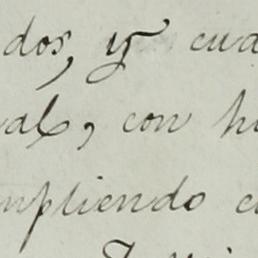 dos, y cua
val, con h
mpliendo c